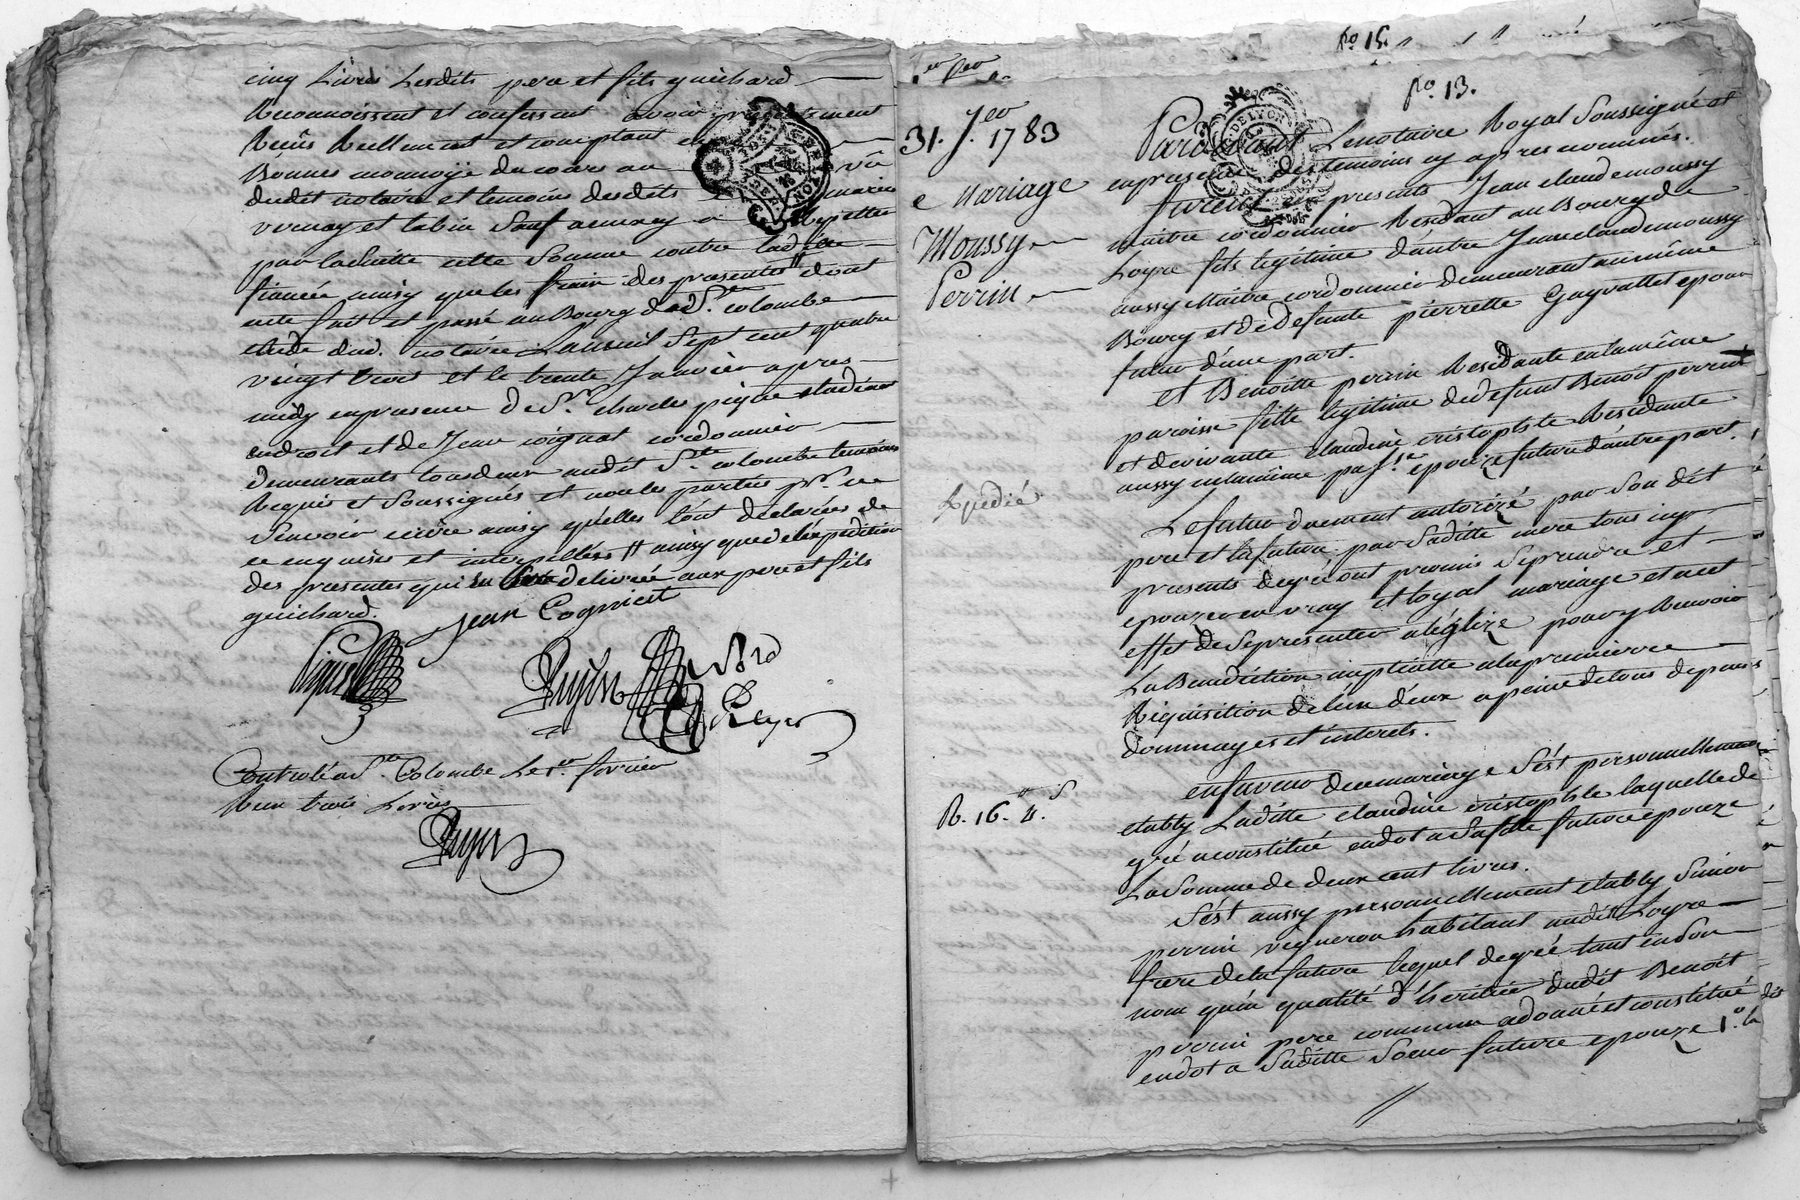 cinq Livres Lesdits pere et fils guichard
Reconnoissent et confessent avoir presentement
Reçûs Reellement et comptant en
Bonnes monnoÿe ducours au vû
dudit notaire et temoins desdits
vernay et labie Sauf aemney a
par laditte cette Somme contre lad.
fiancée ainsy que les frais des presentes dont
acte fait et passé au Bourg de Ste. colombe
etude dud. notaire Lan mil Sept cent quatre
vingt trois et le trente Janvier apres
midy en presence de Sr. charles pigue etudiant
endroit et de Jean coignat cordonnier
demeurants tous deux audit Ste. colombe temoins
Requis et Soussignés et non les parties pr. ne
Scavoir écrire ainsy qu'elles l'ont declarées de
ce enquises et interpellées ainsy que de l'expedition
des presentes qui sera delivrée aux pere et fils
guichard.
jean Cogniat
Controlé a Ste. Colombe Le 1er. fevrier
Reçu trois Livres
no. 15.
no. 13.
31. Jer. 1783
Mariage
Moussy
Perrin
Expédié
R. 16.# 4.S
DELYON
Pardevant Lenotaire Royal Soussigné et
enpresence destemoins cy apres nommés.
furent presents Jean claude moussy
maitre cordonnier Residant au Bourg de
Loyre fils legitime d'autre Jean claude moussy
aussy Maitre cordonnier demeurant aumême
Bourg et de defunte pierrette Gayvallet epoux
futur d'une part.
et Benoitte perrin Residante enlamême
paroisse fille legitime dedefunt Benoit perrin
et devivante claudine cristophle Residante
aussy enlamême paSse. epouze future d'autre part.
Lefutur duement autorizé par Son dit
pere et lafuture par Saditte mere tous icy
presents degré ont promis Seprendre et
epouzer en vray et loyal mariage et acet
effet de Sepresenter aléglize pour y Recevoir
La Benediction nuptialle alapremiere
Requisition delun deux apeine detous depens
dommages et interets.
enfaveur decemariage S'ést personnellement
etably Laditte claudine cristophle laquelle de
gré aconstitué endot aSaditte fille future epouze
LaSomme de deux cent livres.
S'ést aussy personnellement etably Simon
perrin vigneron habitant audit Loyre
frere dela future lequel degré tant enSon
nom qu'en qualité d'heritier dudit Benoit
perrin pere commun adonné et constitué
endot a Saditte Soeur future epouze 1°. la